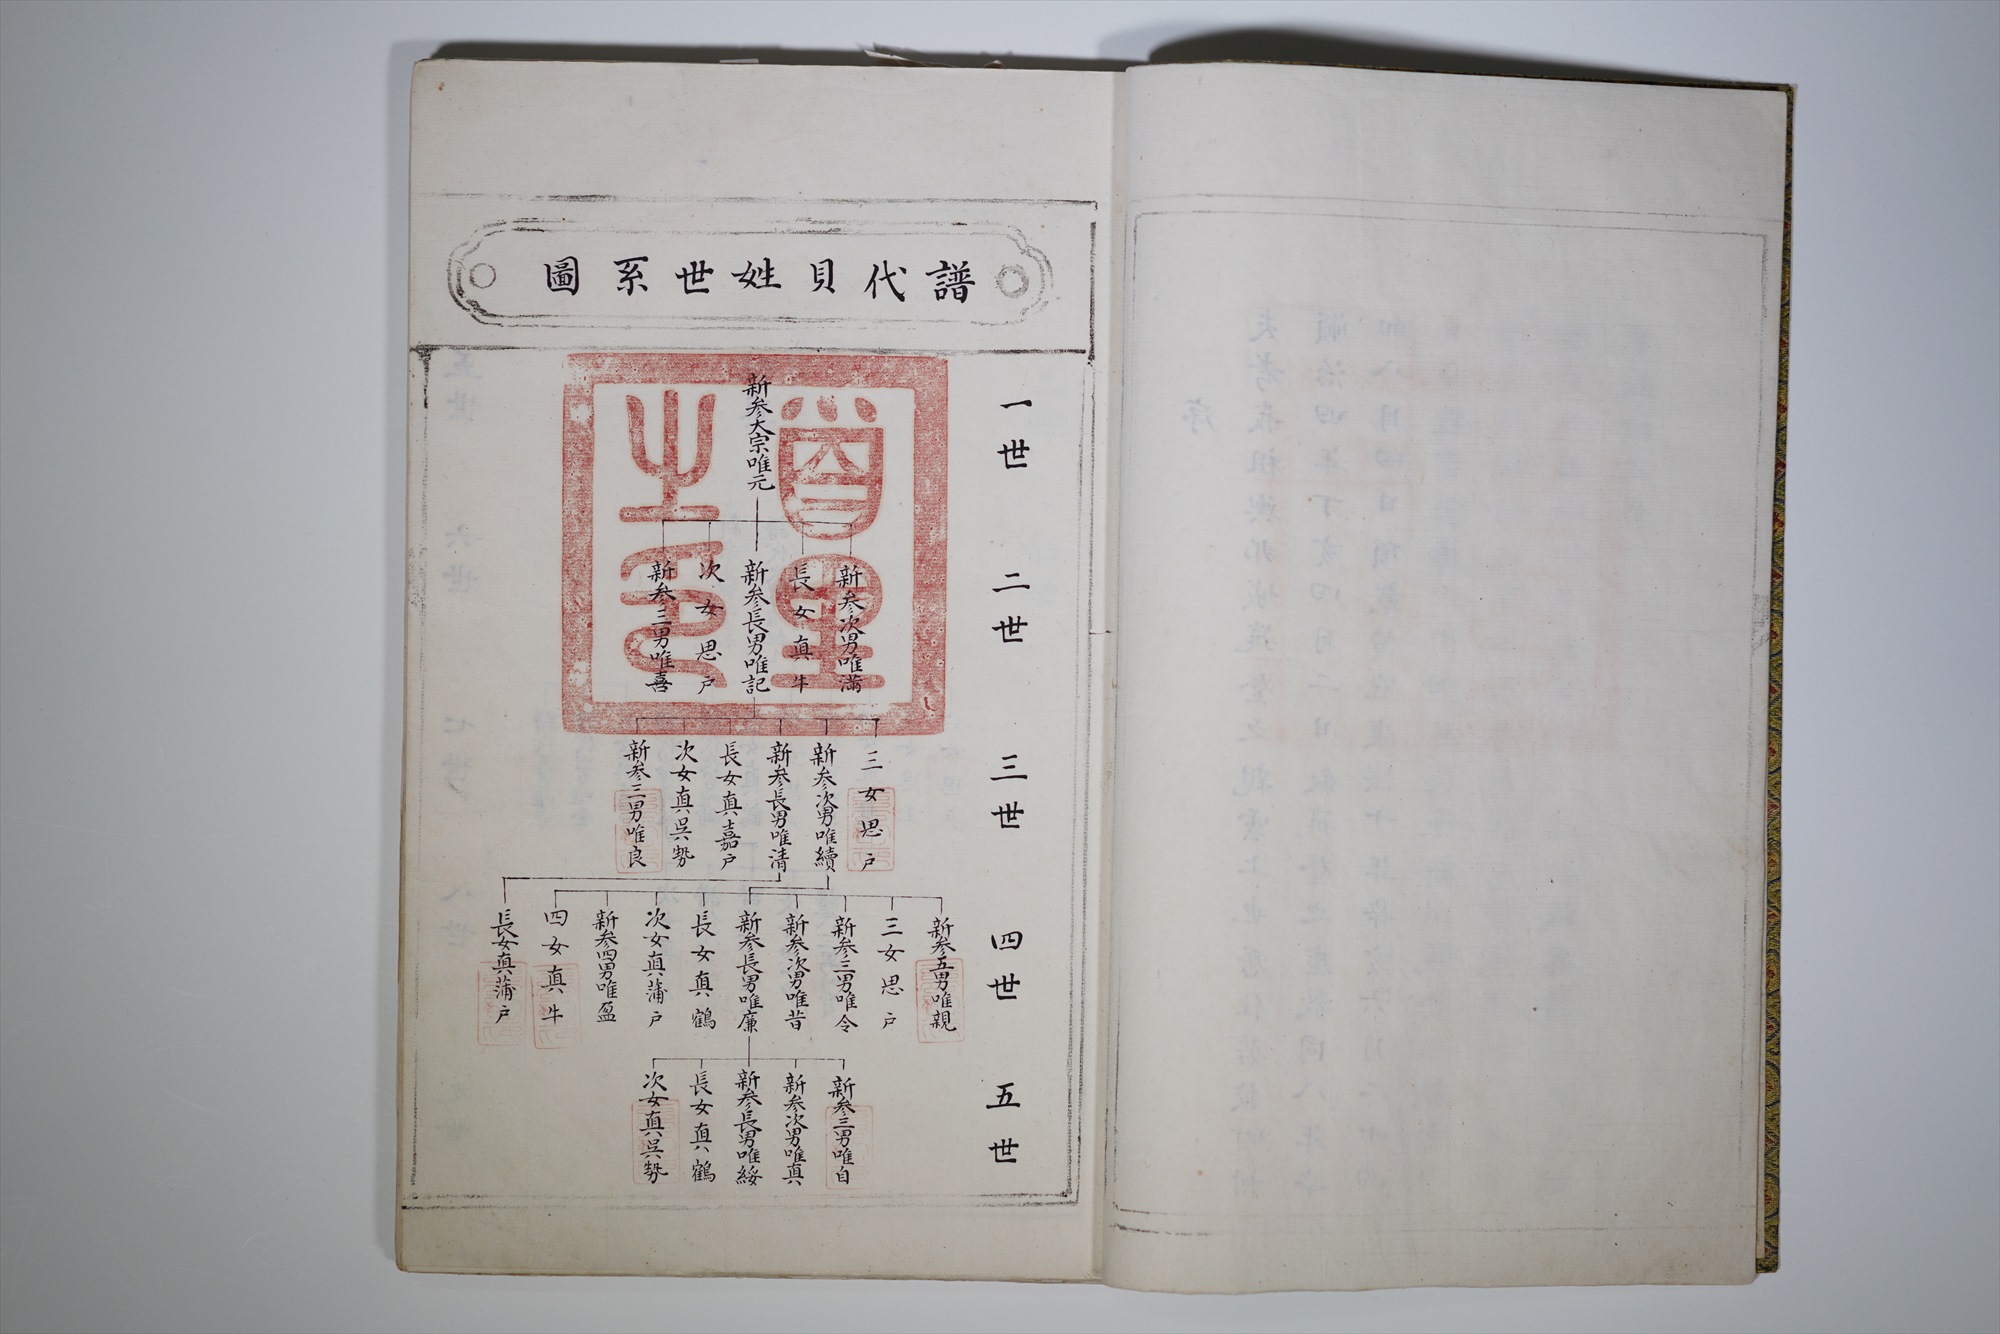 譜代貝姓世系圖
一世
新参大宗唯元
二世
新参次男唯満
長女真牛
新参長男唯記
次女思戸
新参三男唯喜
三世
三女思戸
新参次男唯續
新参長男唯清
長女真嘉戸
次女真呉勢
新参三男唯良
四世
新参五男唯親
三女思戸
新参三男唯令
新参次男唯昔
新参長男唯廉
長女真鶴
次女真蒲戸
新参四男唯盈
四女真牛
長女真蒲戸
五世
新参三男唯自
新参次男唯真
新参長男唯綏
長女真鶴
次女真呉勢
首里之印